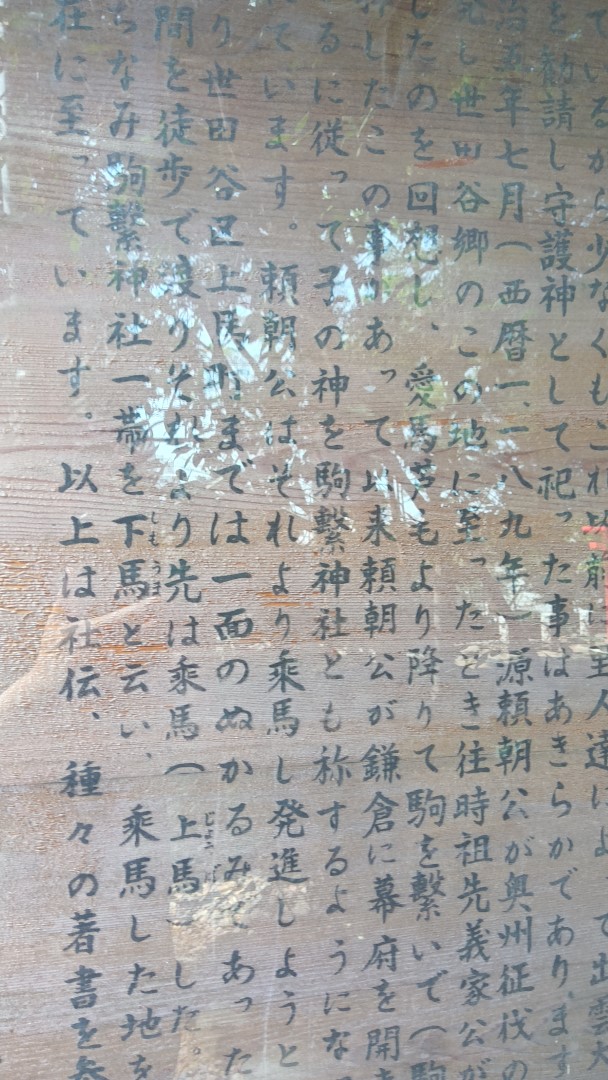 ているから少なくもこれ以前に里人達によって出雲大
を勧請し守護神として祀った事はあきらかであります
治五年七月(西暦一、一八九年)源頼朝公が奥州征伐の
発し世田谷郷のこの地に至ったとき往時祖先義家公が
したのを回想し、愛馬芦毛より降りて駒を繋いで(駒
拝したこの事があって以来頼朝公が鎌倉に幕府を開き
るに従って子の神を駒繋神社とも称するようになっ
れています。頼朝公はそれより乗馬し発進しようと
り世田谷区上馬町までは一面のぬかるみであった
間を徒歩で渡りそれより先は乗馬(上馬)した。
ちなみ駒繋神社一帯を下馬と云い、乗馬した地を
在に至っています。以上は社伝、種々の著書を参